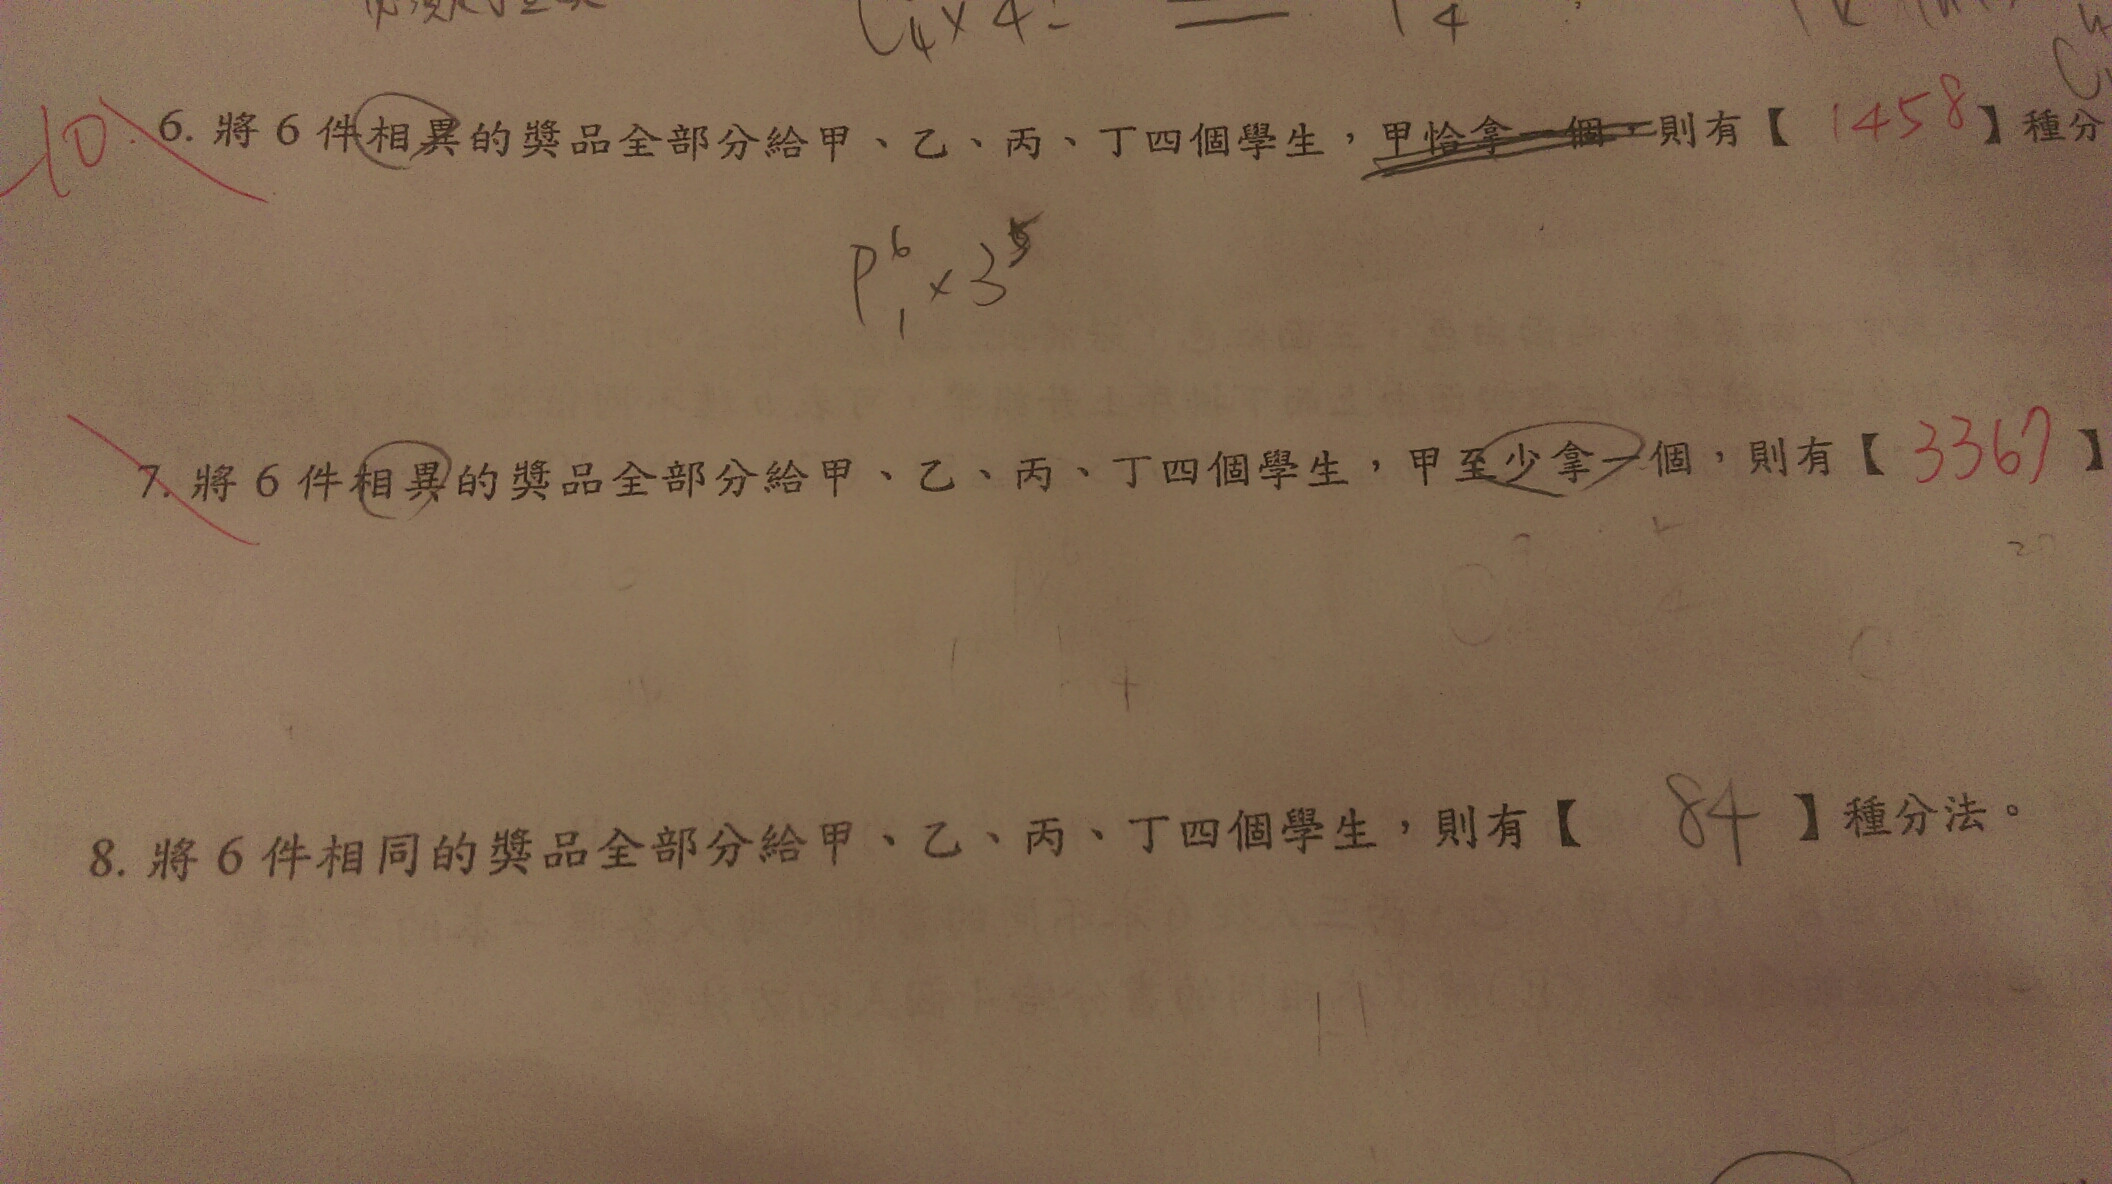 C₄ × 4 =
10. 6. 將 6 件相異的獎品全部分給甲、乙、丙、丁四個學生，甲恰拿一個，則有【 1458 】種分
P⁶₁ × 3⁵
7. 將 6 件相異的獎品全部分給甲、乙、丙、丁四個學生，甲至少拿一個，則有【 3367 】
8. 將 6 件相同的獎品全部分給甲、乙、丙、丁四個學生，則有【 84 】種分法。